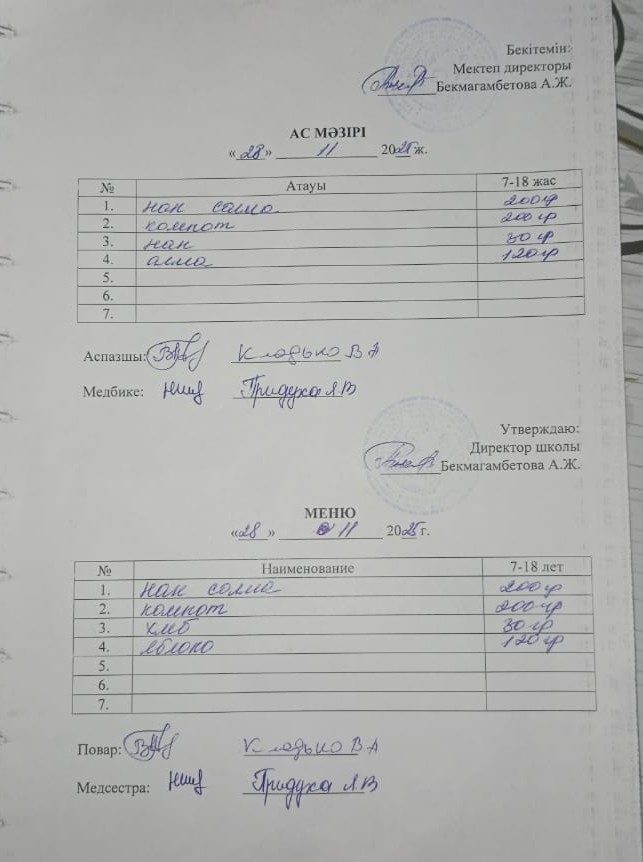 Бекітемін:
Мектеп директоры
Бекмагамбетова А.Ж.
АС МӘЗІРІ
«28» 11 2025 ж.
№ Атауы 7-18 жас
1. нан салма 200гр
2. компот 200гр
3. нан 30гр
4. алма 120гр
5.
6.
7.
Аспазшы: Кладько В А
Медбике: Придуха Л В
Утверждаю:
Директор школы
Бекмагамбетова А.Ж.
МЕНЮ
«28» 11 2025 г.
№ Наименование 7-18 лет
1. нан салма 200гр
2. компот 200гр
3. хлеб 30гр
4. яблоко 120гр
5.
6.
7.
Повар: Кладько В А
Медсестра: Придуха Л В